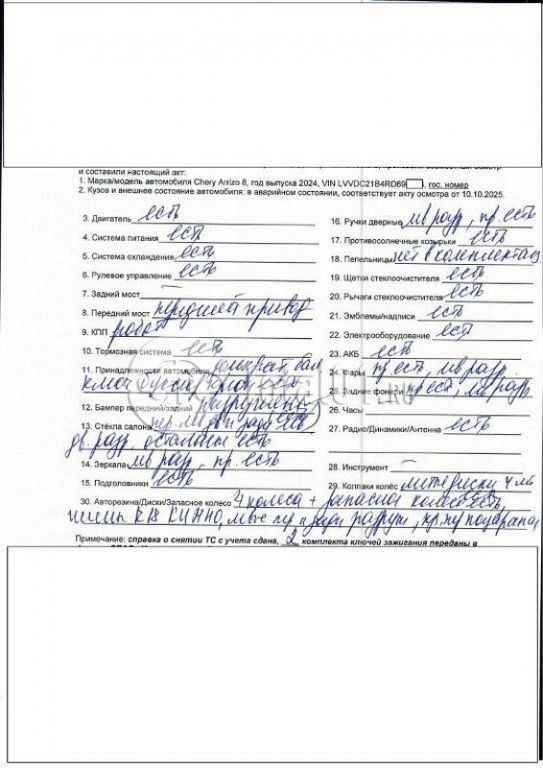 и составили настоящий акт:
1. Марка/модель автомобиля Chery Arrizo 8, год выпуска 2024, VIN LVVDC21B4RD69 , гос. номер
2. Кузов и внешнее состояние автомобиля: в аварийном состоянии, соответствует акту осмотра от 10.10.2025.
3. Двигатель есть
4. Система питания есть
5. Система охлаждения есть
6. Рулевое управление есть
7. Задний мост –
8. Передний мост передний привод
9. КПП робот
10. Тормозная система есть
11. Принадлежности автомобиля домкрат, бал.
ключ, буксир. крюк есть
12. Бампер передний/задний разрушены
13. Стёкла салона
дв. разр, остальные есть
14. Зеркала лв разр, пр. есть
15. Подголовники есть
16. Ручки дверные лв разр, пр. есть
17. Противосолнечные козырьки есть
18. Пепельницы нет в комплектац
19. Щетки стеклоочистителя есть
20. Рычаги стеклоочистителя есть
21. Эмблемы/надписи есть
22. Электрооборудование есть
23. АКБ есть
24. Фары пр ест, лв разр.
25. Задние фонари пр ест, лв разр.
26. Часы
27. Радио/Динамики/Антенна есть
28. Инструмент –
29. Колпаки колёс литые диски 4 шт
30. Авторезина/Диски/Запасное колесо 4 колеса + запасное колесо есть,
шины R18 КИННО, лвые пр и задн разруш,
Примечание: справка о снятии ТС с учета сдана, 2 комплекта ключей зажигания переданы в